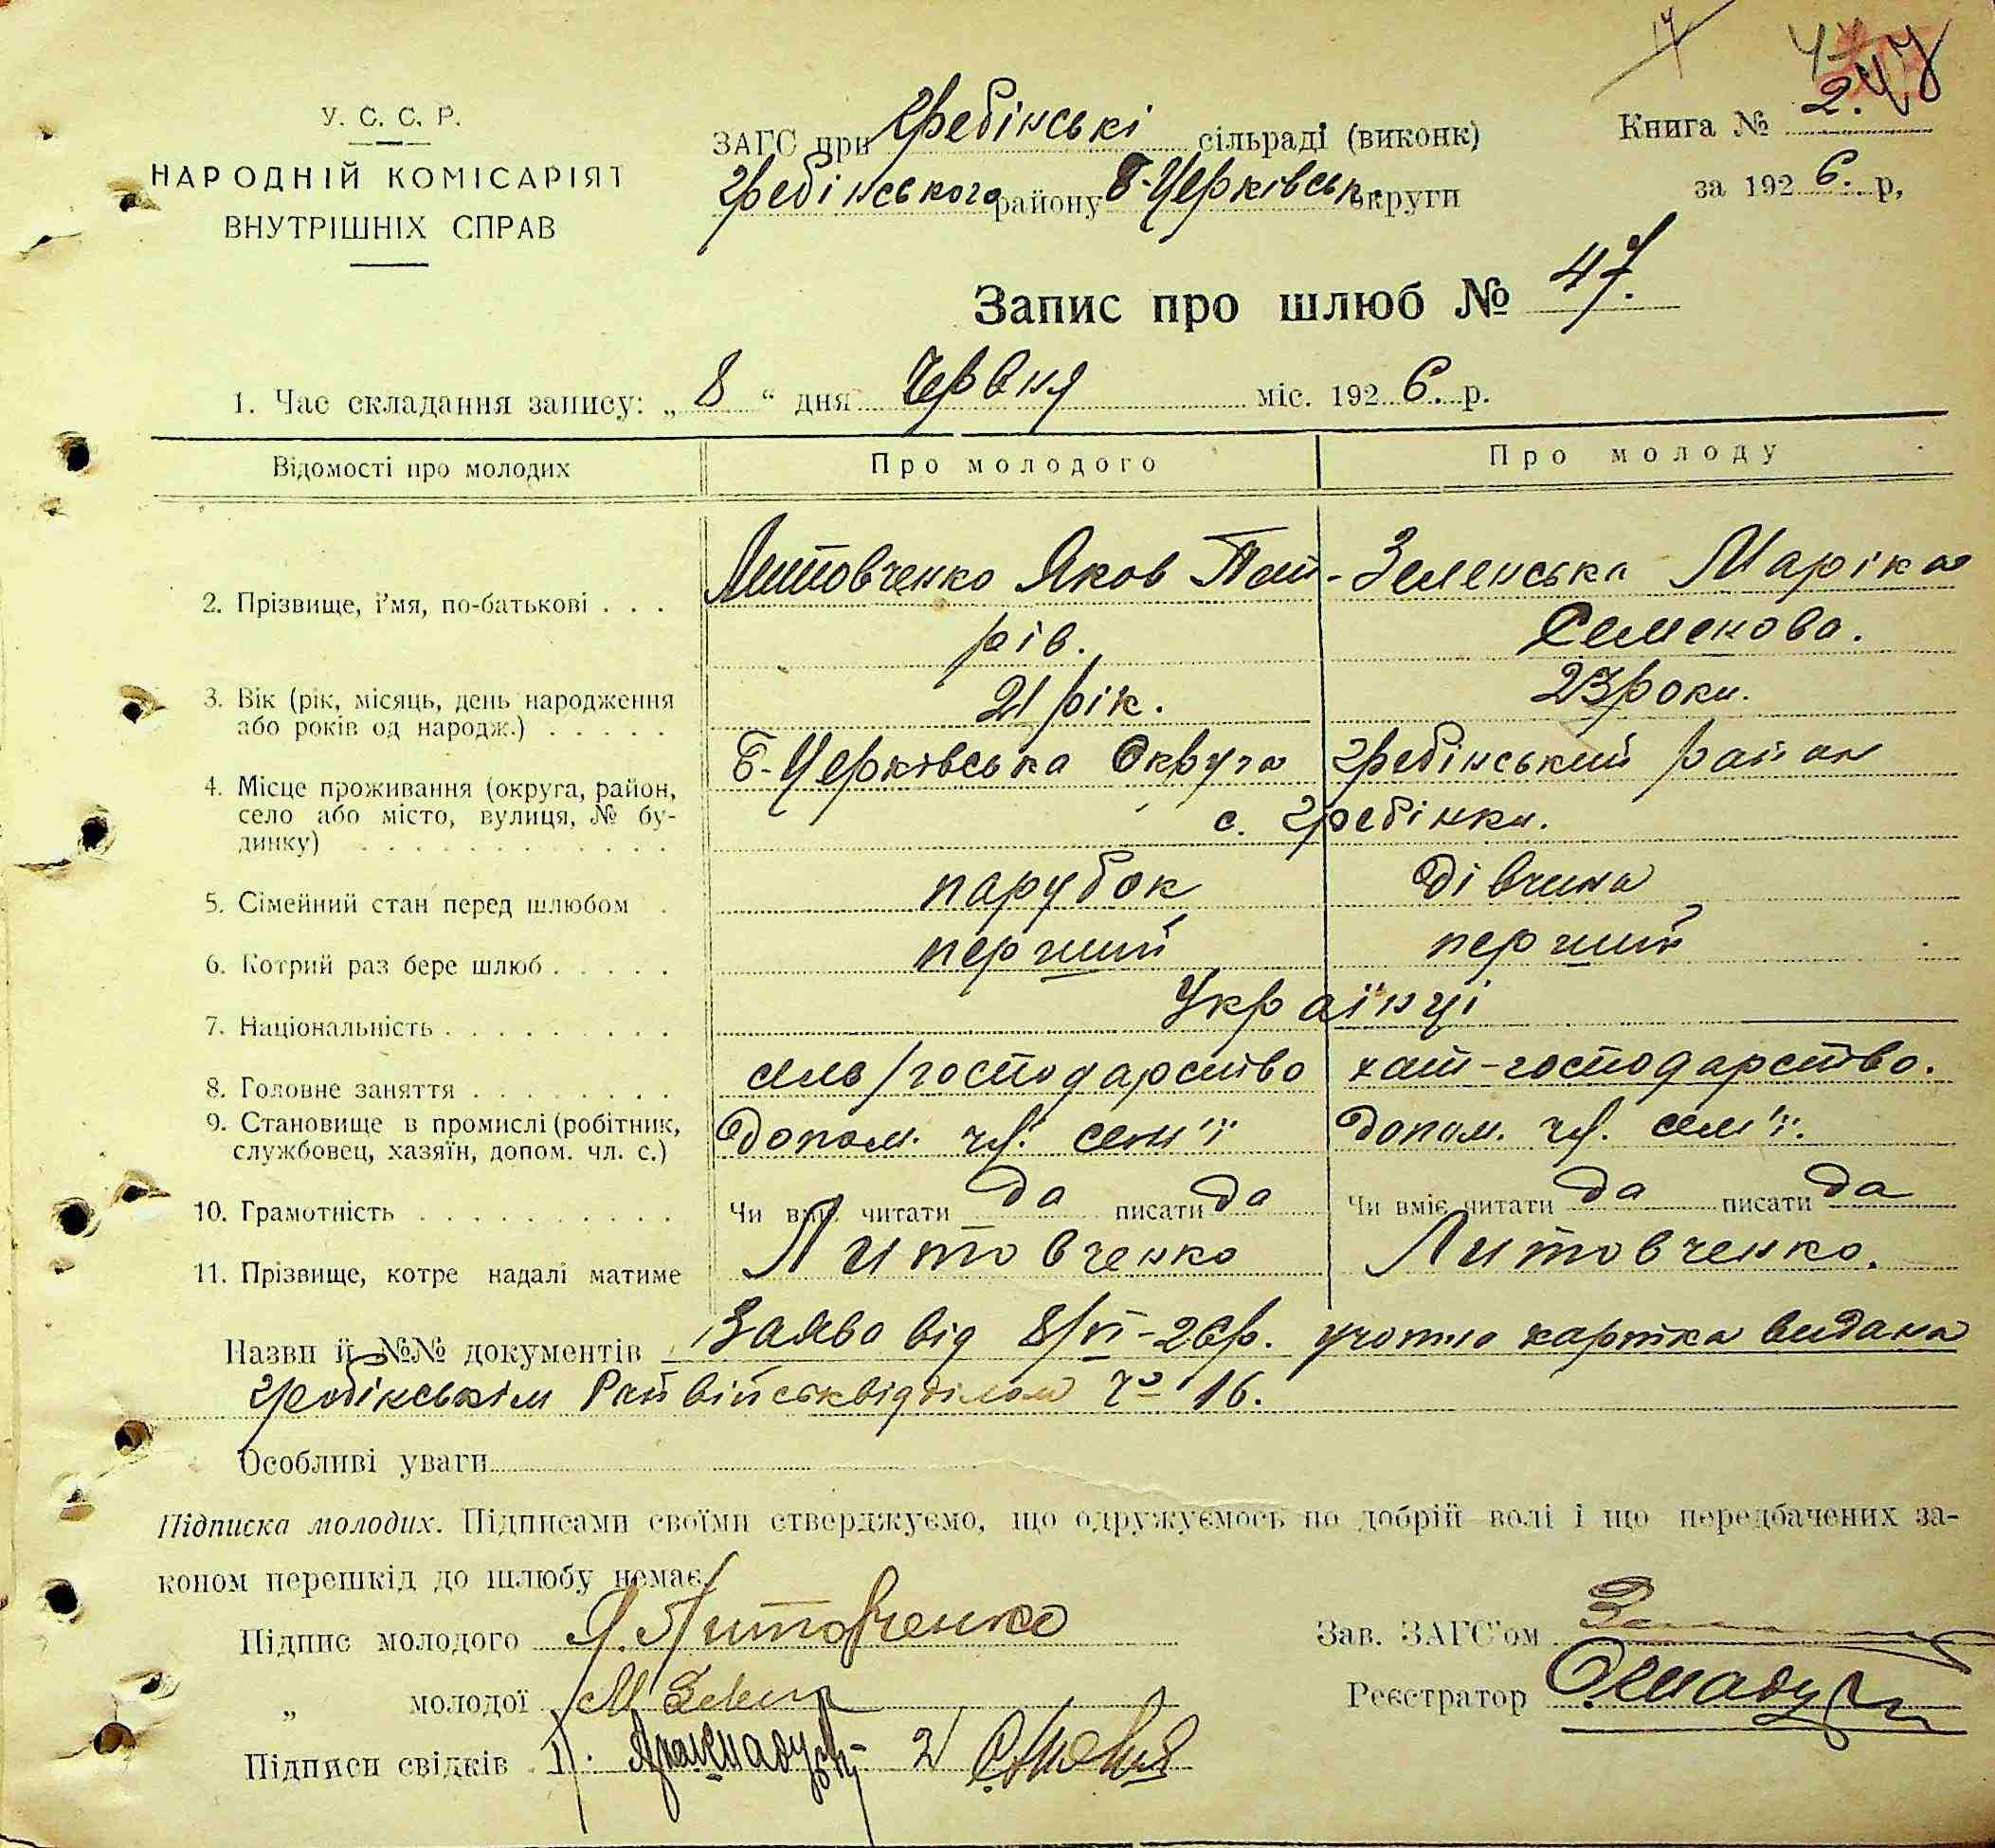 У. С. С. Р.
НАРОДНІЙ КОМІСАРІЯТ
ВНУТРІШНІХ СПРАВ
ЗАГС при Гребінські сільраді (виконк)
Гребінського району Б-Церківськ. округи
Книга № 2.
за 1926. р,
Запис про шлюб № 47.
1. Час складання запису: „ 8 “ дня Червня міс. 1926. р.
Відомості про молодих Про молодого Про молоду
2. Прізвище, і'мя, по-батькові . . . Литовченко Яков Пет- Зеленська Маріка
рів. Семенова.
3. Вік (рік, місяць, день народження 21 рік. 23 роки.
або років од народж.) . . . . .
4. Місце проживання (округа, район, Б-Церківська Округа Гребінський район
село або місто, вулиця, № бу- с. Гребінки.
динку) . . . . . . . . . . . .
5. Сімейний стан перед шлюбом . парубок дівчина
6. Котрий раз бере шлюб . . . . . перший перший
7. Національність . . . . . . . . . Українці
8. Головне заняття . . . . . . . . сель/господарство хат-господарство.
9. Становище в промислі (робітник, Допом. чл. сем'ї Допом. чл. сем'ї.
службовец, хазяїн, допом. чл. с.)
10. Грамотність . . . . . . . . . . Чи вміє читати да писати да Чи вміє читати да писати да
11. Прізвище, котре надалі матиме Литовченко Литовченко.
Назви й №№ документів Заява від 8/VI-26р. учотна картка видана
Гребінським Райвійськвідділом № 16.
Особливі уваги
Підписка молодих. Підписами своїми стверджуємо, що одружуємось по добрій волі і що передбачених за-
коном перешкід до шлюбу немає.
Підпис молодого Я. Литовченко Зав. ЗАГС'ом
„ молодої М Зелен Реєстратор
Підписи свідків 1) 2)